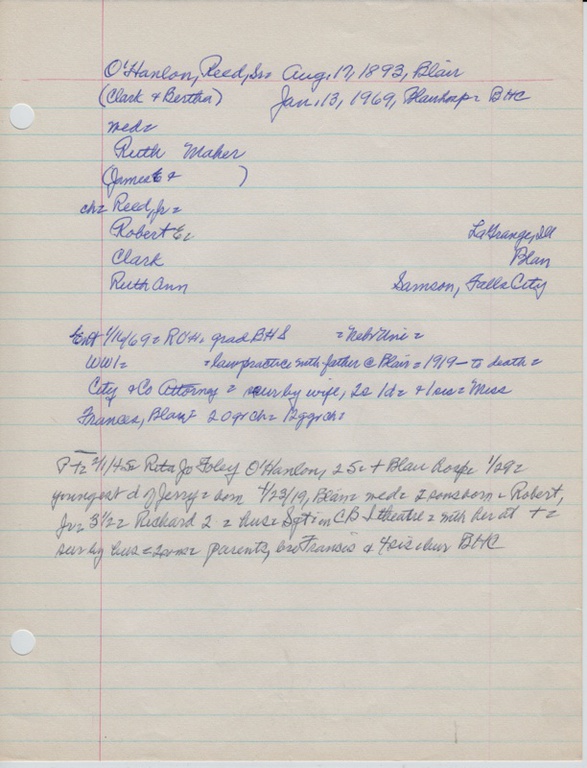 O'Hanlon, Reed, Sr= Aug. 17, 1893, Blair
(Clark & Bertha) Jan. 13, 1969, Blair hosp= BHC
med=
Ruth Maher
(James E & )
ch= Reed, Jr=
Robert E. LaGrange, Ill
Clark Blair
Ruth Ann Samson, Falls City
Ent 1/16/69= ROH= grad BHS =Nebr Uni=
WWI= =law practice with father @ Blair= 1919- to death=
City & Co Attorney= sur by wife, 2s 1d= + 1 sis= Miss
Frances, Blair= 20 grch= 12 ggrch=
P+T= 2/1/45= Rita Jo Foley O'Hanlon, 25= + Blair hosp= 1/29=
youngest d of Jerry= born 4/23/19, Blair= med= 2 sons born= Robert,
Jr= 3 1/2= Richard 2 = hus= Sgt in CBI theatre= with her at +=
sur by hus= 2sons= parents, bro Francis & 4 sis= bur BHC